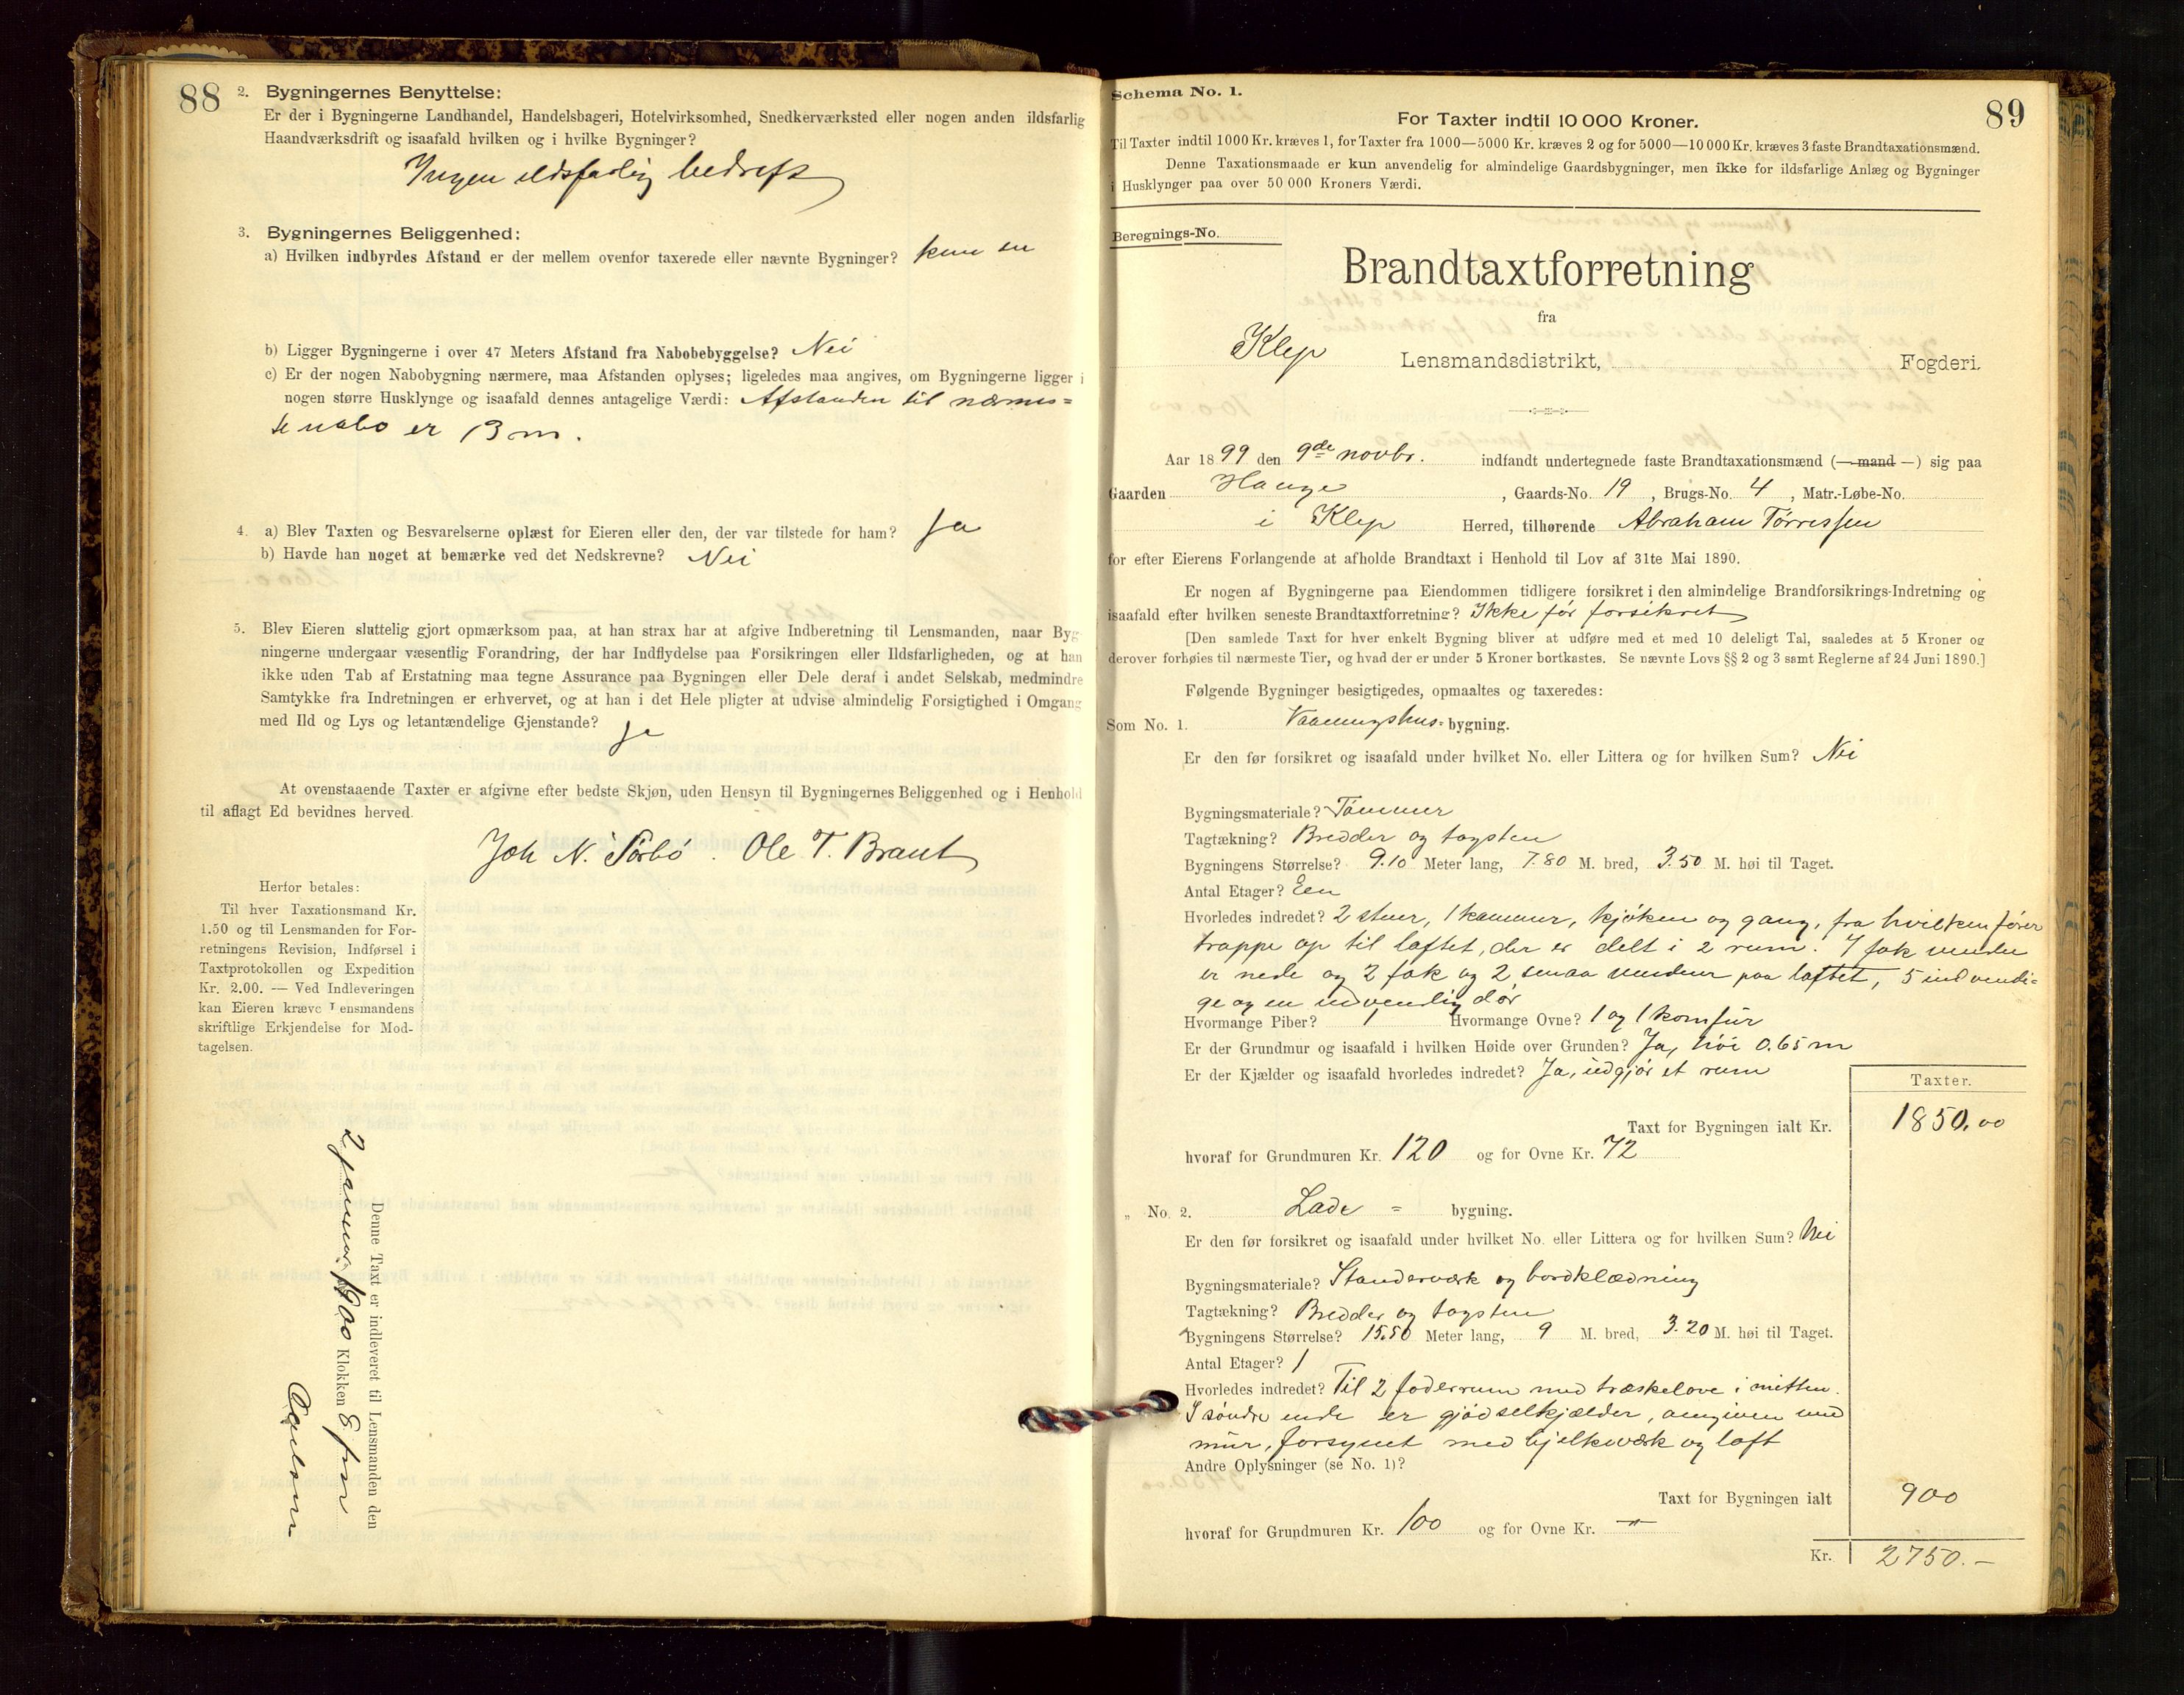 88
2. Bygningernes Benyttelse:
Er der i Bygningerne Landhandel, Handelsbageri, Hotelvirksomhed, Snedkerværksted eller nogen anden ildsfarlig
Haandværksdrift og isaafald hvilken og i hvilke Bygninger?
Ingen ildsfarlig bedrift
3. Bygningernes Beliggenhed:
a) Hvilken indbyrdes Afstand er der mellem ovenfor taxerede eller nævnte Bygninger? kun en
b) Ligger Bygningerne i over 47 Meters Afstand fra Nabobebyggelse? Nei
c) Er der nogen Nabobygning nærmere, maa Afstanden oplyses; ligeledes maa angives, om Bygningerne ligger i
nogen større Husklynge og isaafald dennes antagelige Værdi: Afstanden til nærmes=
te nabo er 13 m.
4. a) Blev Taxten og Besvarelserne oplæst for Eieren eller den, der var tilstede for ham? Ja
b) Havde han noget at bemærke ved det Nedskrevne? Nei
5. Blev Eieren sluttelig gjort opmærksom paa, at han strax har at afgive Indberetning til Lensmanden, naar Byg-
ningerne undergaar væsentlig Forandring, der har Indflydelse paa Forsikringen eller Ildsfarligheden, og at han
ikke uden Tab af Erstatning maa tegne Assurance paa Bygningen eller Dele deraf i andet Selskab, medmindre
Samtykke fra Indretningen er erhvervet, og at han i det Hele pligter at udvise almindelig Forsigtighed i Omgang
med Ild og Lys og letantændelige Gjenstande? Ja
At ovenstaaende Taxter er afgivne efter bedste Skjøn, uden Hensyn til Bygningernes Beliggenhed og i Henhold
til aflagt Ed bevidnes herved.
Joh N. Sørbø. Ole T. Braut
Herfor betales:
Til hver Taxationsmand Kr.
1.50 og til Lensmanden for For-
retningens Revision, Indførsel i
Taxtprotokollen og Expedition
Kr. 2.00. — Ved Indleveringen
kan Eieren kræve Lensmandens
skriftlige Erkjendelse for Mod-
tagelsen.
Denne Taxt er indleveret til Lensmanden den
2 januar 1900 Klokken 8 fm
89
Schema No. 1.
For Taxter indtil 10 000 Kroner.
Til Taxter indtil 1000 Kr. kræves 1, for Taxter fra 1000—5000 Kr. kræves 2 og for 5000—10 000 Kr. kræves 3 faste Brandtaxationsmænd.
Denne Taxationsmaade er kun anvendelig for almindelige Gaardsbygninger, men ikke for ildsfarlige Anlæg og Bygninger
i Husklynger paa over 50 000 Kroners Værdi.
Beregnings-No.
Brandtaxtforretning
fra
Klep Lensmandsdistrikt, Fogderi.
Aar 1899 den 9de novbr. indfandt undertegnede faste Brandtaxationsmænd (— mand —) sig paa
Gaarden Hauge, Gaards-No. 19, Brugs-No. 4, Matr.-Løbe-No.
i Klep Herred, tilhørende Abraham Tørressen
for efter Eierens Forlangende at afholde Brandtaxt i Henhold til Lov af 31te Mai 1890.
Er nogen af Bygningerne paa Eiendommen tidligere forsikret i den almindelige Brandforsikrings-Indretning og
isaafald efter hvilken seneste Brandtaxtforretning? Ikke før forsikret
[Den samlede Taxt for hver enkelt Bygning bliver at udføre med et med 10 deleligt Tal, saaledes at 5 Kroner og
derover forhøies til nærmeste Tier, og hvad der er under 5 Kroner bortkastes. Se nævnte Lovs §§ 2 og 3 samt Reglerne af 24 Juni 1890.]
Følgende Bygninger besigtigedes, opmaaltes og taxeredes:
Som No. 1. Vaaningshus= bygning.
Er den før forsikret og isaafald under hvilket No. eller Littera og for hvilken Sum? Nei
Bygningsmateriale? Tømmer
Tagtækning? Bredder og tagsten
Bygningens Størrelse? 9.10 Meter lang, 7.80 M. bred, 3.50 M. høi til Taget.
Antal Etager? Een
Hvorledes indredet? 2 stuer, 1 kammer, kjøken og gang, fra hvilken fører
trappe op til loftet, der er delt i 2 rum. 7 fak vendu
er nede og 2 fak og 2 smaa venduer paa loftet, 5 indvendi-
ge og en udvendig dør
Hvormange Piber? 1 Hvormange Ovne? 1 og 1 komfür
Er der Grundmur og isaafald i hvilken Høide over Grunden? Ja, høi 0.65 m
Er der Kjælder og isaafald hvorledes indredet? Ja, udgjør et rum
Taxter.
Taxt for Bygningen ialt Kr. 1850.00
hvoraf for Grundmuren Kr. 120 og for Ovne Kr. 72
„ No. 2. Lade = bygning.
Er den før forsikret og isaafald under hvilket No. eller Littera og for hvilken Sum? Nei
Bygningsmateriale? Standerværk og bordklædning
Tagtækning? Bredder og tagsten
Bygningens Størrelse? 15.50 Meter lang, 9 M. bred, 3.20 M. høi til Taget.
Antal Etager? 1
Hvorledes indredet? Til 2 foderrum med træskelove i mitten.
I søndre ende er gjødselkjælder, omgiven med
mür, forsynet med bjelkværk og loft
Andre Oplysninger (se No. 1)?
Taxt for Bygningen ialt 900
hvoraf for Grundmuren Kr. 100 og for Ovne Kr. —"—
Kr. 2750.—